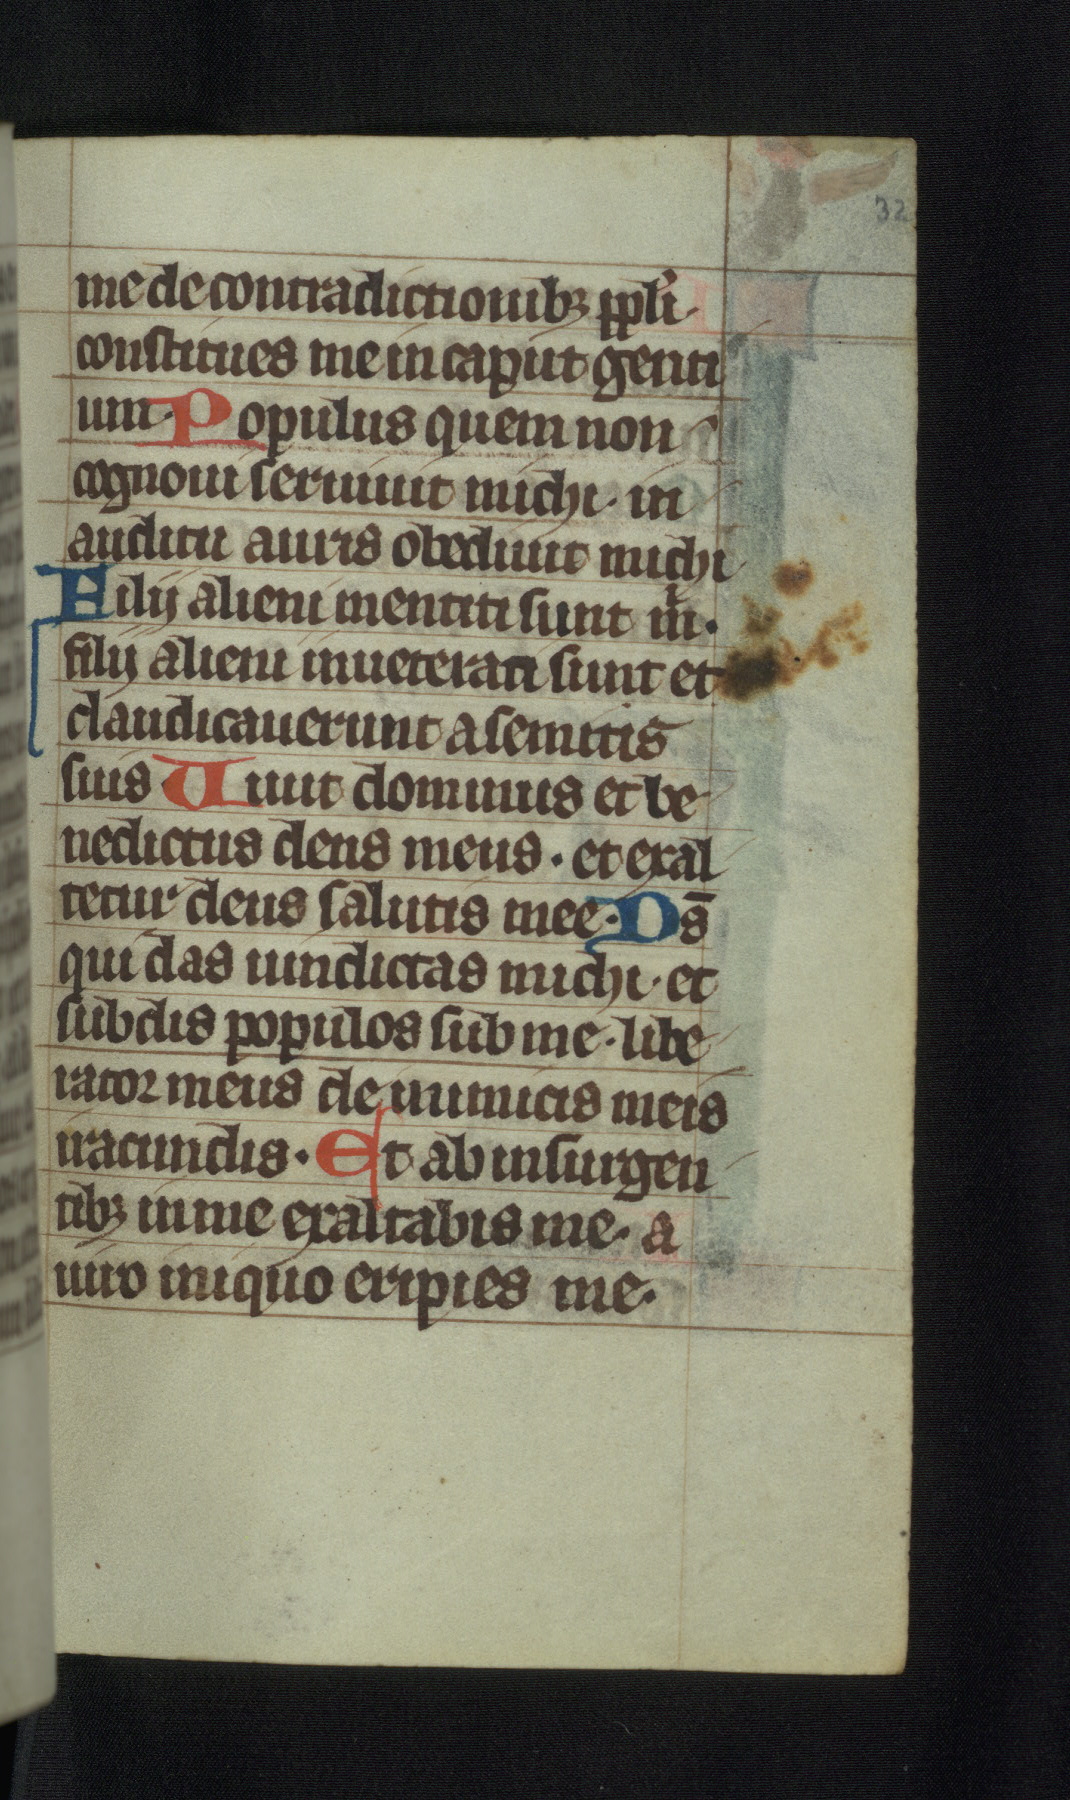 32
me de contradictionibꝫ ppl̓i
constitues me in caput genti
um. Populus quem non
cognoui seruiuit michi. in
auditu auris obediuit michi
Filij alieni mentiti sunt m̓.
filij alieni inueterati sunt et
claudicauerunt a semitis
suis Uiuit dominus et be
nedictus deus meus. et exal
tetur deus salutis mee. Ds̄
qui das uindictas michi. et
subdis populos sub me. libe
rator meus de inimicis meis
iracundis. Et ab insurgen
tibꝫ in me exaltabis me. a
uiro iniquo eripies me.